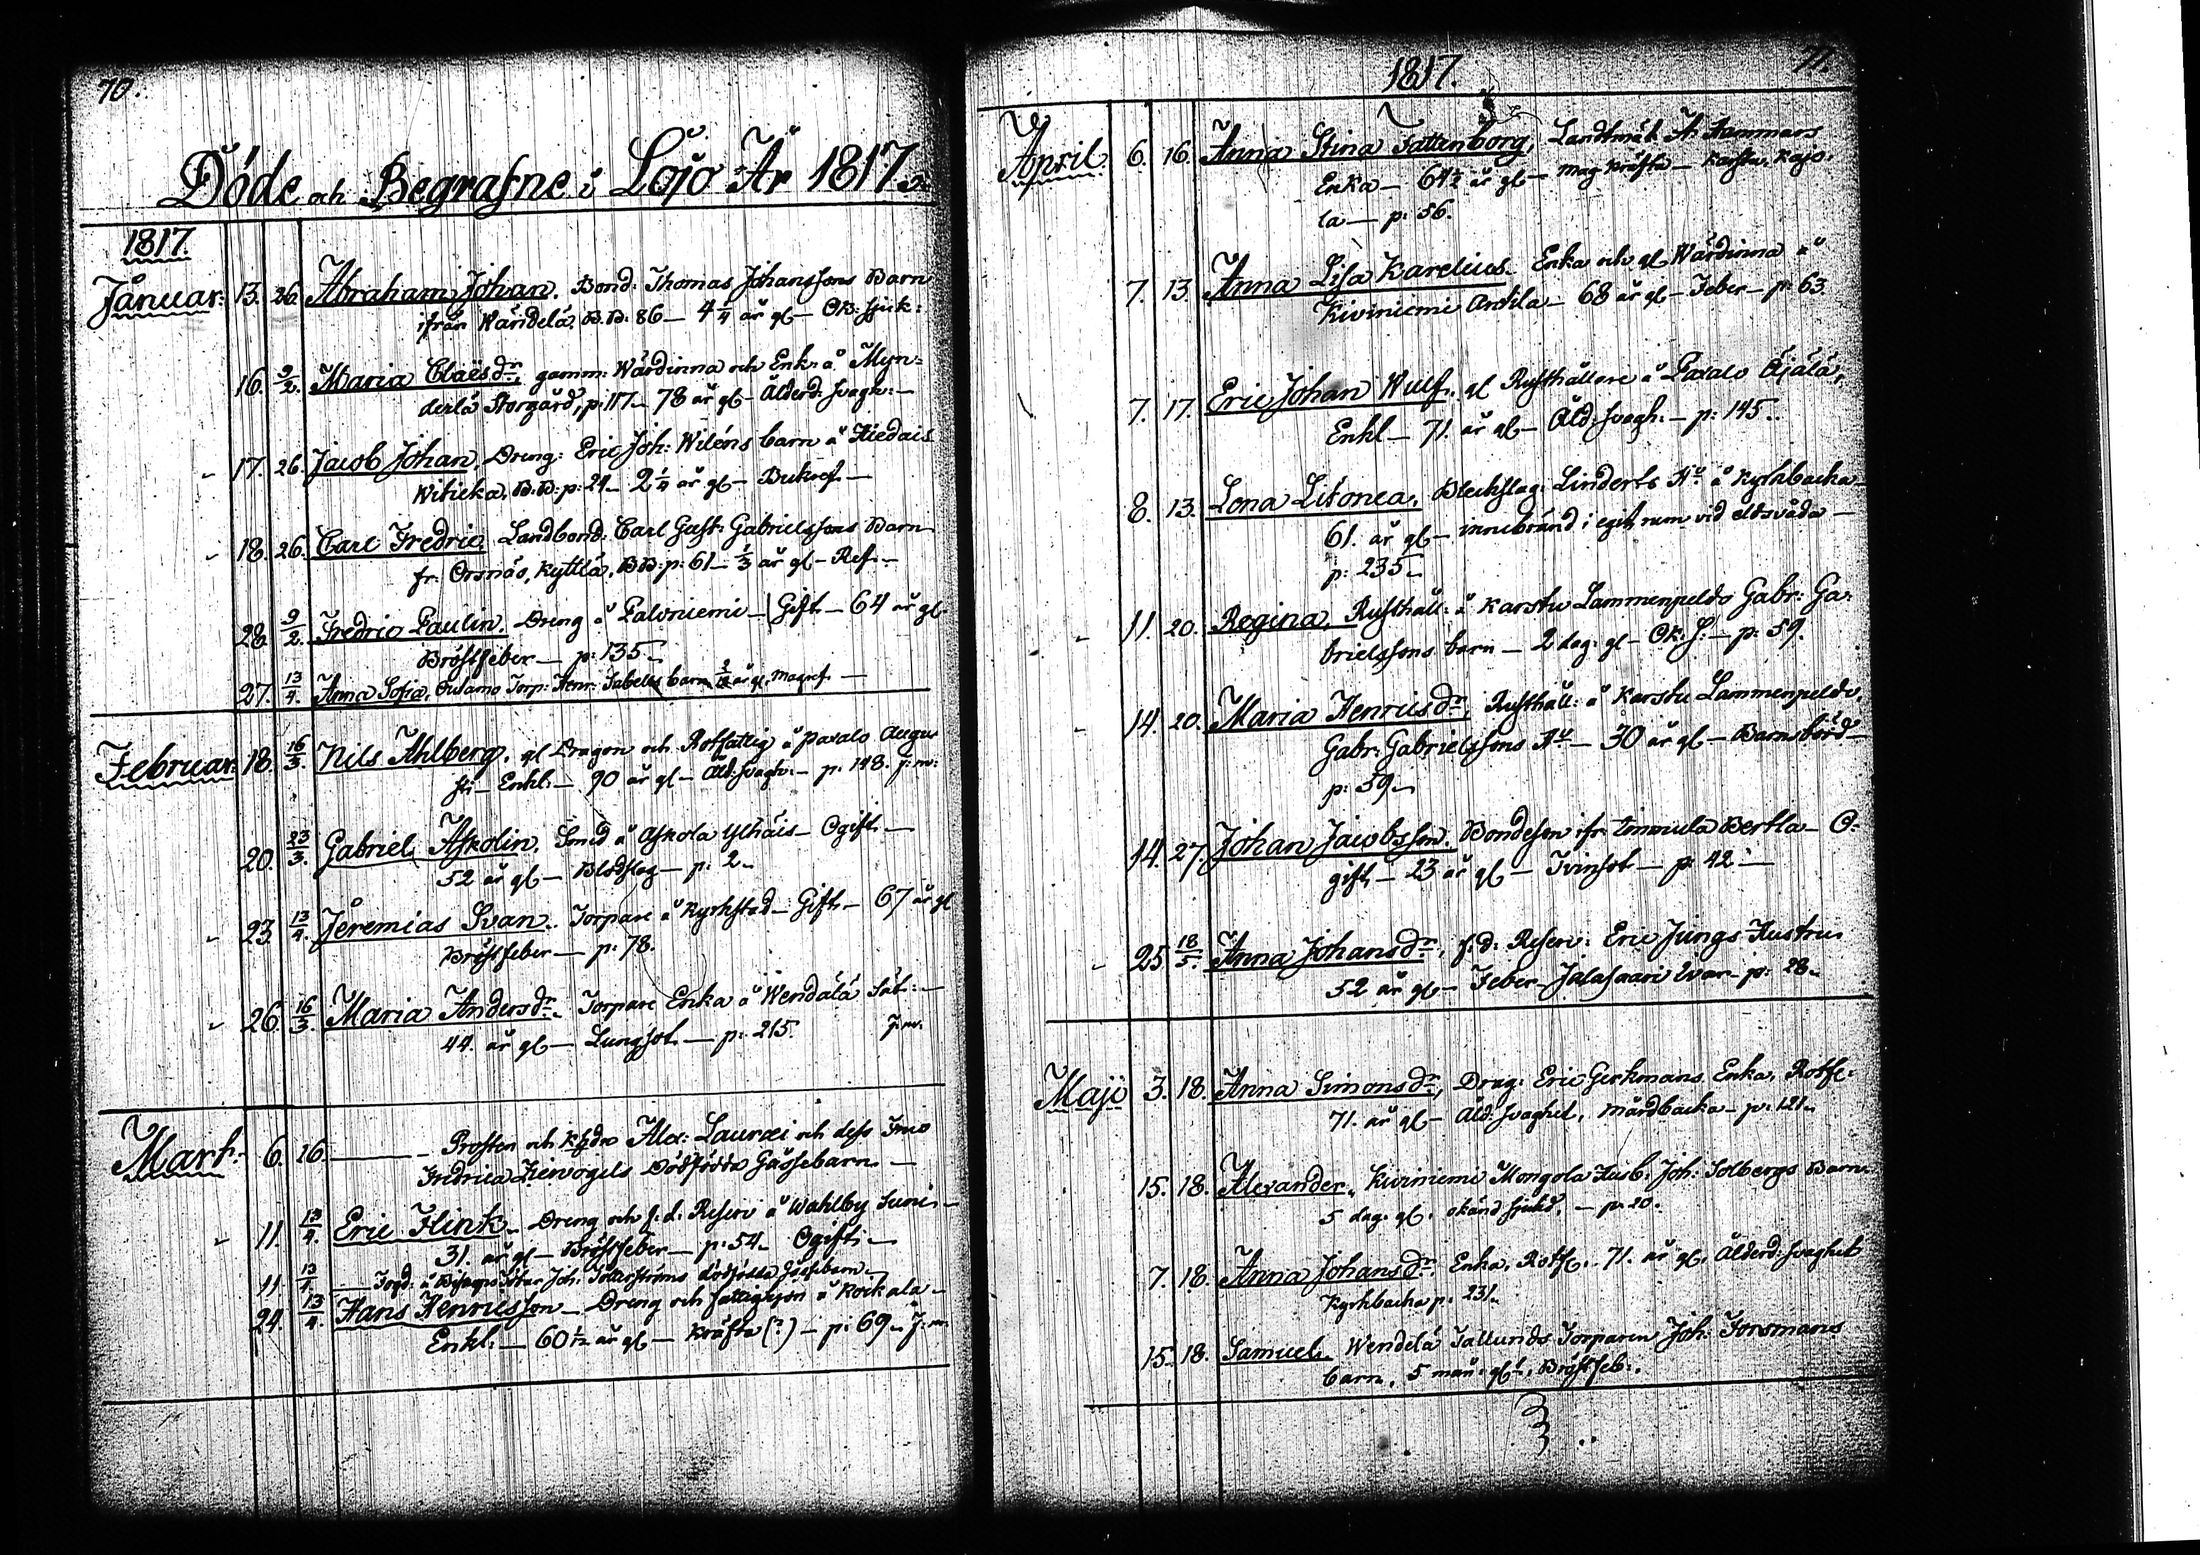 70.
Döde och Begrafne i Lojo År 1817.
1817.
Januar: 13. 26. Abraham Johan. Bond: Thomas Johanssons Barn
ifrån Wändelä, B.B: 86 — 4 1/4 år gl — Ok: sjuk:
16. 9/2. Maria Claësdr, gamm: Wärdinna och Enk: å Myn-
derlä Storgård, p: 117 — 78 år gl — Ålderd: svagh: —
17. 26. Jacob Johan, Dreng: Eric Joh: Wiléns barn å Hiedais
B.B: p: 24 — 2 1/4 år gl — Bukref. —
18. 26. Carl Fredric, Landbond: Carl Gust: Gabrielssons Barn
fr: Orsnäs, Kyttlä, BB: p: 61 — 1/3 år gl — Ref. —
28. 9/2. Fredric Paulin. Dreng å Paloniemi — Gift — 64 år gl
Bröstfeber — p: 135 —
27. 13/4. Anna Sofia, Torp: Henr: barn år gl. Magref. —
Februar: 18. 16/3. Nils Ahlberg, gl Dragon och Rotfattig å Paxalo Augu
sti — Enkl: — 90 år gl — Åld: svagh: — p: 148. j: m:
20. 23/3. Gabriel Askolin, Smed å Askola Ylhäis — Ogift —
52 år gl — Blodslag — p: 2 —
23. 13/4. Jeremias Svan. Torpare å Kyrkstad — Gift — 67 år gl
Bröstfeber — p: 78.
26. 16/3. Maria Andersdr. Torpare Enka å Wendälä Sät: —
44. år gl — Lungsot — p: 215. j: m:
Mart: 6. 16. — Prosten och Khdn Alex: Lauræi och dess Fruo
Fredrica Dödfödda Gåssebarn —
11. 13/4. Eric Flink — Dreng och f.d: Reserv å Wahlby Suni —
31. år gl — Bröstfeber — p: 54 — Ogift: —
11. 13/4. — Joh: dödfödda Gåssebarn —
24. 13/4. Hans Henricsson — Dreng och fattighjon å Koikala —
Enkl: — 60 1/12 år gl — Kräfta (?) — p: 69 — j: m:
71.
1817.
April. 6. 16. Anna Stina Tattenborg, Landtmät. A: Hammars
Enka — 64 1/2 år gl — Mag kräfta — Karstu, Kajo-
la — p: 56.
7. 13. Anna Lisa Karelius. Enka och gl Wärdinna å
Kiviniemi Anttila — 68 år gl — Feber — p: 63.
7. 17. Eric Johan Wulf. gl Rusthållare å Paxalo Ojälä,
Enkl — 71. år gl — Åld: svagh: — p: 145 —
8. 13. Lona Litonea. Blechslag: Linderts Hu å Kyrkbacka
61. år gl — innebränd i eget rum vid eldsvåda —
p: 235 —
11. 20. Regina, Rusthåll: å Karstu Lammenpeldo Gabr: Ga-
brielssons barn — 2 dag: gl — Ok: S: — p: 59.
14. 20. Maria Henricsdr, Rusthåll: å Karstu Lammenpeldo,
Gabr: Gabrielssons Hu — 30 år gl — Barnsbörd —
p: 59 —
14. 27. Johan Jacobsson. Bondeson ifr: Immula Bertla — O-
gift — 23 år gl — Tvinsot — p: 42 —
25. 18/5. Anna Johansdr, f.d: Reserv: Eric Jungs Hustru
52 år gl — Feber — Jalasaari Ivar — p: 28 —
Maji 3. 18. Anna Simonsdr, Drag: Eric Gerkmans Enka, Rotfe:
71. år gl — Åld: svaghet, Mårdbacka — p: 121 —
15. 18. Alexander, Kiviniemi Mongola Husb: Joh: Solbergs Barn
5 dag: gl. okänd sjukd. — p: 20.
7. 18. Anna Johansdr. Enka, Rotfe. 71. år gl, Ålderd: svaghet
Kyrkbacka p: 231 —
15. 18. Samuel. Wendelä Jallunds Torparen Joh: Forsmans
barn. 5 mån: gl:, Bröstfeb: .